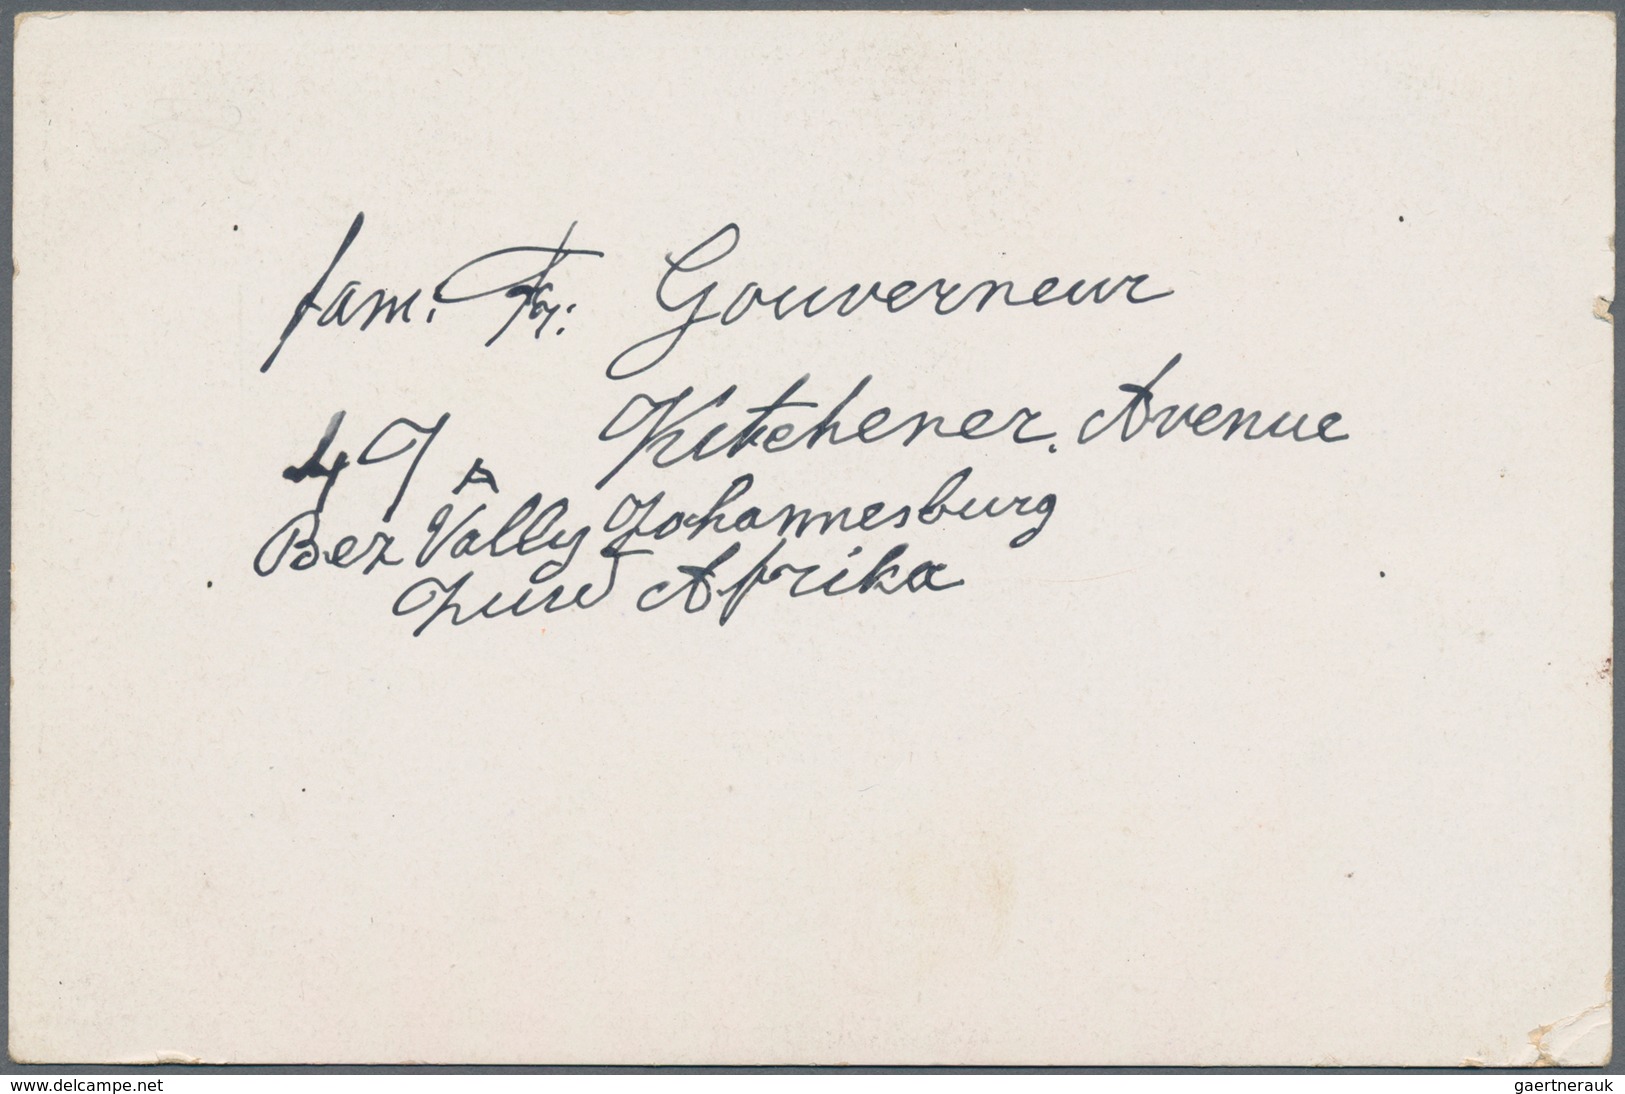 fam. Fr: Gouverneur
47 A Kitchener. Avenue
Bez Vally Johannesburg
Zuid Afrika
www.delcampe.net
gaertnerauk